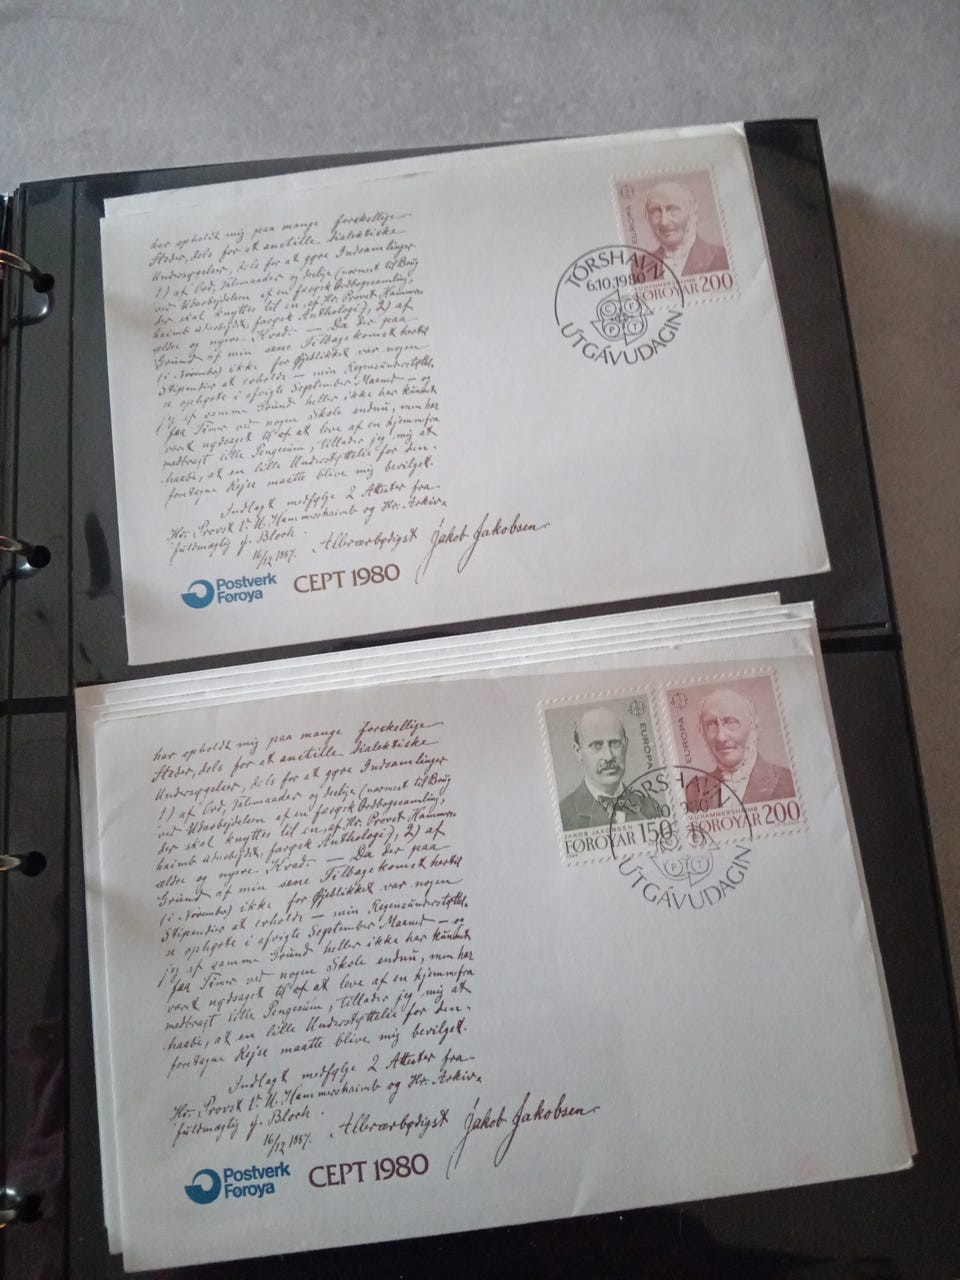 EUROPA
V.U.HAMMERSHAIMB
FØROYAR 200
TÓRSHAVN
6.10.1980
CEPT
ÚTGÁVUDAGIN
har opholdt mig paa mange forskellige
Steder, dels for at anstille dialektiske
Undersøgelser, dels for at gøre Indsamlinger
1) af Ord, Talemaader og deslige (nærmest til Brug
ved Udarbejdelsen af en færøsk Ordbogssamling,
der skal knyttes til en, af Hr. Provst Hammers-
haimb udarbejdet, færøsk Anthologi), 2) af
ældre og nyere Kvad. — Da der paa
Grund af min sene Tilbagekomst hertil
(i November) ikke for Øjeblikket var nogen
Stipendier at erholde — min Regensunderstøttel-
se ophørte i afvigte September Maaned — og
jeg af samme Grund heller ikke har kunnet
faa Timer ved nogen Skole endnu, men har
været nødsaget til at leve af en hjemmefra
medbragt lille Pengesum, tillader jeg mig at
haabe, at en lille Understøttelse for den-
foretagne Rejse maatte blive mig bevilget.
Indlagt medfølge 2 Attester fra
Hr. Provst V. U. Hammershaimb og Hr. Arkiv-
fuldmægtig J. Bloch.
16/12 1887. Allerærbødigst Jakob Jakobsen
Postverk
Føroya
CEPT 1980
EUROPA
JAKOB JAKOBSEN
FØROYAR 150
EUROPA
V.U.HAMMERSHAIMB
FØROYAR 200
TÓRSHAVN
ÚTGÁVUDAGIN
har opholdt mig paa mange forskellige
Steder, dels for at anstille dialektiske
Undersøgelser, dels for at gøre Indsamlinger
1) af Ord, Talemaader og deslige (nærmest til Brug
ved Udarbejdelsen af en færøsk Ordbogssamling,
der skal knyttes til en, af Hr. Provst Hammers-
haimb udarbejdet, færøsk Anthologi), 2) af
ældre og nyere Kvad. — Da der paa
Grund af min sene Tilbagekomst hertil
(i November) ikke for Øjeblikket var nogen
Stipendier at erholde — min Regensunderstøttel-
se ophørte i afvigte September Maaned — og
jeg af samme Grund heller ikke har kunnet
faa Timer ved nogen Skole endnu, men har
været nødsaget til at leve af en hjemmefra
medbragt lille Pengesum, tillader jeg mig at
haabe, at en lille Understøttelse for den-
foretagne Rejse maatte blive mig bevilget.
Indlagt medfølge 2 Attester fra
Hr. Provst V. U. Hammershaimb og Hr. Arkiv-
fuldmægtig J. Bloch.
16/12 1887. Allerærbødigst Jakob Jakobsen
Postverk
Føroya
CEPT 1980